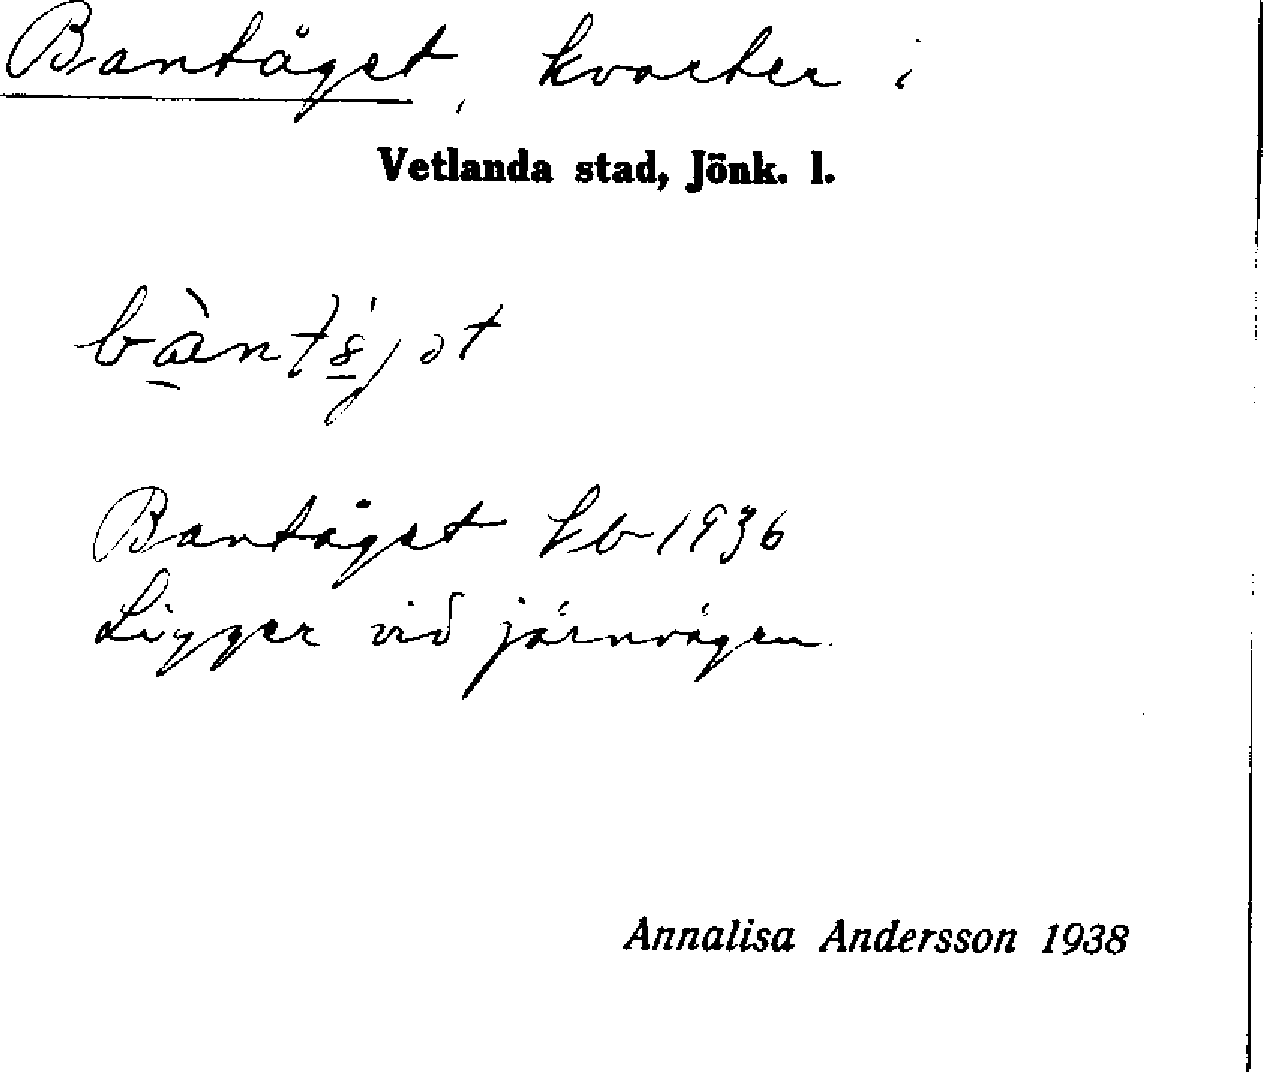 Bantåget, kvarter i
Vetlanda stad, Jönk. l.
Bantåget kb 1936
Ligger vid järnvägen.
Annalisa Andersson 1938